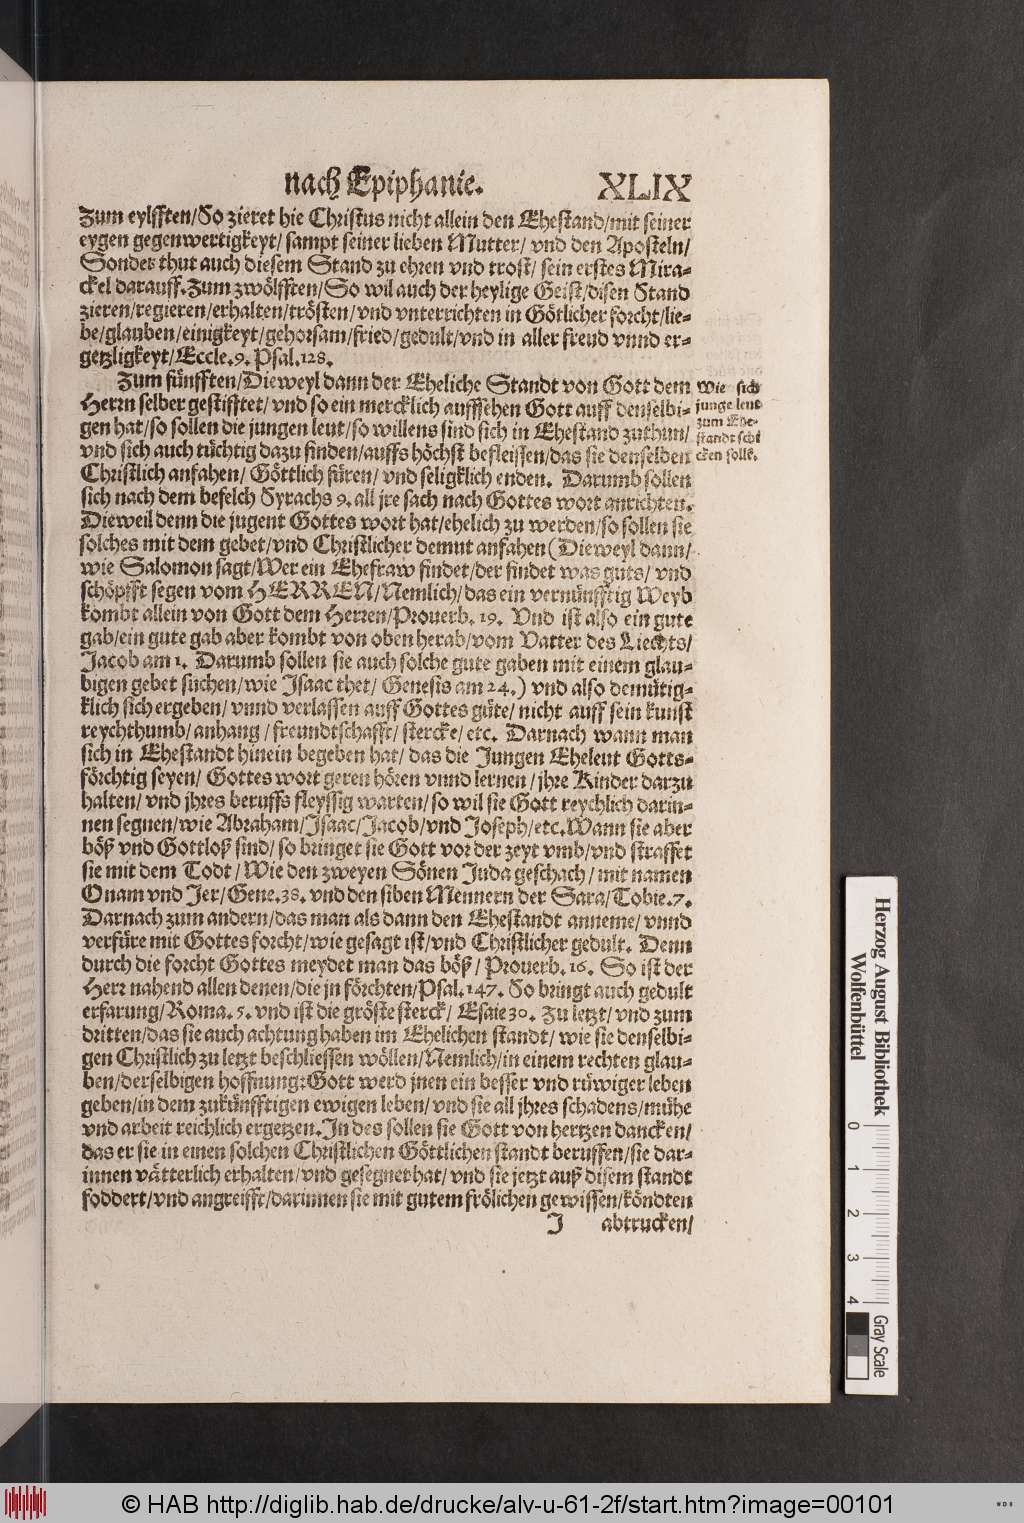 nach Epiphanie. XLIX
Zum eylfften/So zieret hie Christus nicht allein den Ehestand/mit seiner
eygen gegenwertigkeyt/ sampt seiner lieben Mutter/ vnd den Aposteln/
Sonder thut auch diesem Stand zu ehren vnd trost/ sein erstes Mira-
ckel darauff. Zum zwölfften/So wil auch der heylige Geist/disen Stand
zieren/regieren/erhalten/trösten/vnd vnterrichten in Götlicher forcht/lie-
be/glauben/einigkeyt/gehorsam/fried/gedult/vnd in aller freud vnnd er-
getzligkeyt/Eccle.9. Psal.128.
Zum fünfften/Dieweyl dann der Eheliche Standt von Gott dem
Herrn selber gestifftet/vnd so ein mercklich auffsehen Gott auff denselbi-
gen hat/so sollen die jungen leut/so willens sind sich in Ehestand zuthun/
vnd sich auch tüchtig dazu finden/auffs höchst befleissen/das sie denselben
Christlich anfahen/ Göttlich füren/ vnd seligklich enden. Darumb sollen
sich nach dem befelch Syrachs 9. all jre sach nach Gottes wort anrichten.
Dieweil denn die jugent Gottes wort hat/ehelich zu werden/so sollen sie
solches mit dem gebet/vnd Christlicher demut anfahen (Dieweyl dann/
wie Salomon sagt/Wer ein Ehefraw findet/der findet was guts/ vnd
schöpfft segen vom HERREN/Nemlich/das ein vernünfftig Weyb
kombt allein von Gott dem Herren/Prouerb. 19. Vnd ist also ein gute
gab/ein gute gab aber kombt von oben herab/vom Vatter des Liechts/
Jacob am 1. Darumb sollen sie auch solche gute gaben mit einem glau-
bigen gebet suchen/wie Isaac thet/ Genesis am 24.) vnd also demütig-
klich sich ergeben/ vnnd verlassen auff Gottes güte/ nicht auff sein kunst
reychthumb/anhang/freundtschafft/stercke/etc. Darnach wann man
sich in Ehestandt hinein begeben hat/ das die Jungen Eheleut Gotts-
förchtig seyen/ Gottes wort geren hören vnnd lernen/jhre Kinder darzu
halten/ vnd jhres beruffs fleyssig warten/so wil sie Gott reychlich darin-
nen segnen/wie Abraham/Isaac/Jacob/vnd Joseph/etc. Wann sie aber
böß vnd Gottloß sind/so bringet sie Gott vor der zeyt vmb/vnd straffet
sie mit dem Todt/ Wie den zweyen Sönen Juda geschach/ mit namen
Onam vnd Jer/Gene.38. vnd den siben Mennern der Sara/Tobie.7.
Darnach zum andern/das man als dann den Ehestandt anneme/ vnnd
verfüre mit Gottes forcht/wie gesagt ist/vnd Christlicher gedult. Denn
durch die forcht Gottes meydet man das böß/ Prouerb. 16. So ist der
Herr nahend allen denen/die jn förchten/Psal.147. So bringt auch gedult
erfarung/Roma. 5. vnd ist die gröste sterck/ Esaie 30. Zu letzt/ vnd zum
dritten/das sie auch achtung haben im Ehelichen standt/ wie sie denselbi-
gen Christlich zu letzt beschliessen wöllen/Nemlich/in einem rechten glau-
ben/derselbigen hoffnung:Gott werd jnen ein besser vnd rüwiger leben
geben/in dem zukünfftigen ewigen leben/ vnd sie all jhres schadens/mühe
vnd arbeit reichlich ergetzen. In des sollen sie Gott von hertzen dancken/
das er sie in einen solchen Christlichen Göttlichen standt beruffen/sie dar-
innen vätterlich erhalten/vnd gesegnet hat/ vnd sie jetzt auß disem standt
foddert/vnd angreifft/darinnen sie mit gutem frölichen gewissen/köndten
J abtrucken/
Wie sich
junge leut
zum Ehe-
standt schi
cken solle.
Herzog August Bibliothek
Wolfenbüttel
0 1 2 3 4
Gray Scale
© HAB http://diglib.hab.de/drucke/alv-u-61-2f/start.htm?image=00101